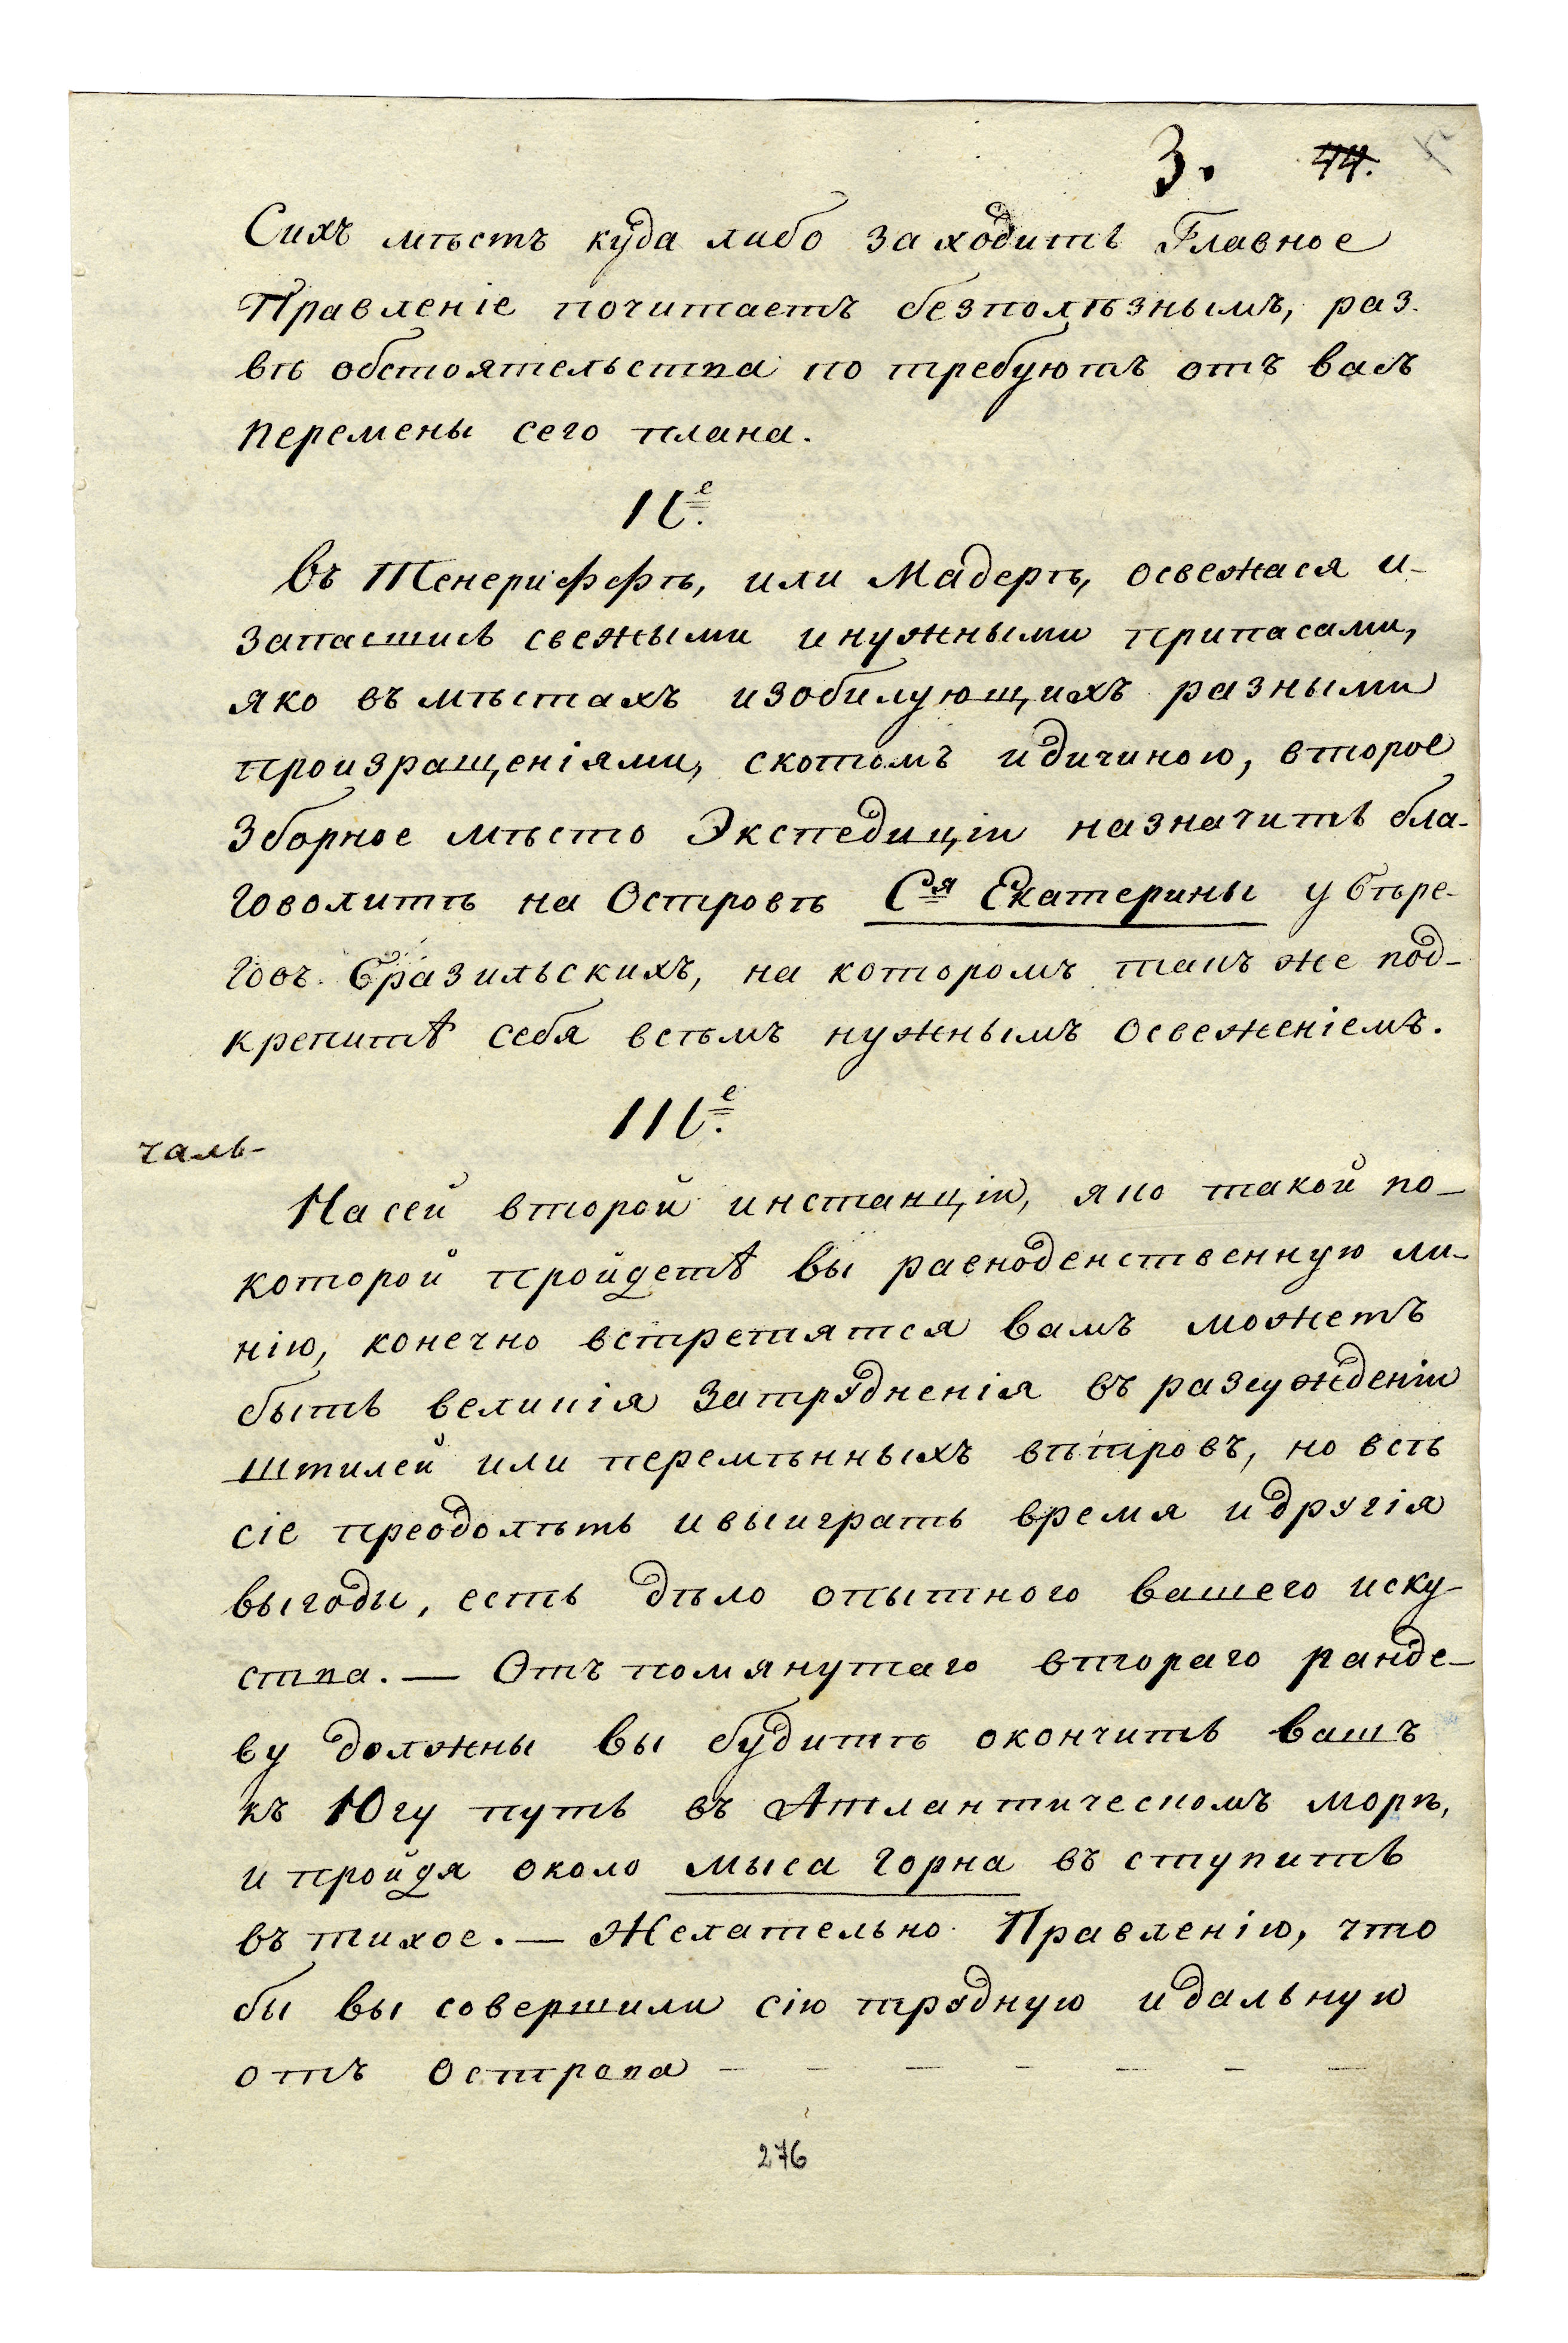 3. 44.
Сихъ мѣстъ куда либо заходить Главное
Правленіе почитаетъ безполѣзнымъ, раз-
вѣ обстоятельства по требуютъ отъ васъ
перемены сего плана.
IIе.
Въ Тенериффѣ, или Мадерѣ, освежася и-
запасшись свежыми и нужными припасами,
яко въ мѣстахъ изобилующихъ разными
произращеніями, скотомъ и дичиною, второе
Зборное мѣсто Экспедиціи назначить бла-
говолитѣ на Островѣ Ся Екатерины у бѣре-
говъ Бразильскихъ, на которомъ такъ же под-
крепитѣ себя всѣмъ нужнымъ освеженіемъ.
IIIе.
чаль-
На сей второй инстанціи, яко такой по-
которой пройдетѣ вы равноденственную ли-
нію, конечно встретятся вамъ можетъ
быть великія затрудненія въ разсужденіи
штилей или перемѣнныхъ вѣтровъ, но всѣ
сіе преодолѣть и выиграть время и другія
выгоды, есть дѣло опытного вашего иску-
ства. — Отъ помянутаго втораго ранде-
ву должны вы будитѣ окончить вашъ
къ Югу путь въ Атлантическомъ морѣ,
и пройдя около мыса Горна въ ступить
въ тихое. — Желательно Правленію, что
бы вы совершили сію трудную и дальную
отъ Острова — — — — — — —
276